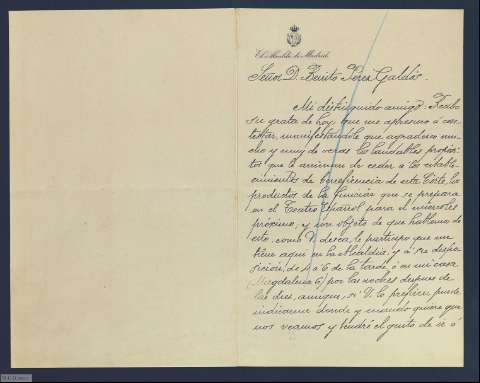 El Alcalde de Madrid
Señor D. Benito Perez Galdós.
Mi distinguido amigo: Recibo
su grata de hoy, que me apresuro á con-
testar, manifestandole que agradezco mu-
cho y muy de veras los laudables propósi-
tos que le animan de ceder á los estable-
cimientos de beneficencia de esta Corte los
productos de la funcion que se prepara
en el Teatro Español para el miercoles
próximo, y con objeto de que hablemos de
esto, como V. desea, le participo que me
tiene aqui en la Alcaldia, y á su dispo-
sicion, de 4 á 6 de la tarde, ó en mi casa
(Magdalena 6) por las noches despues de
las diez, aunque, si V. lo prefiere, puede
indicarme donde y cuando quiere que
nos veamos y tendré el gusto de ir á